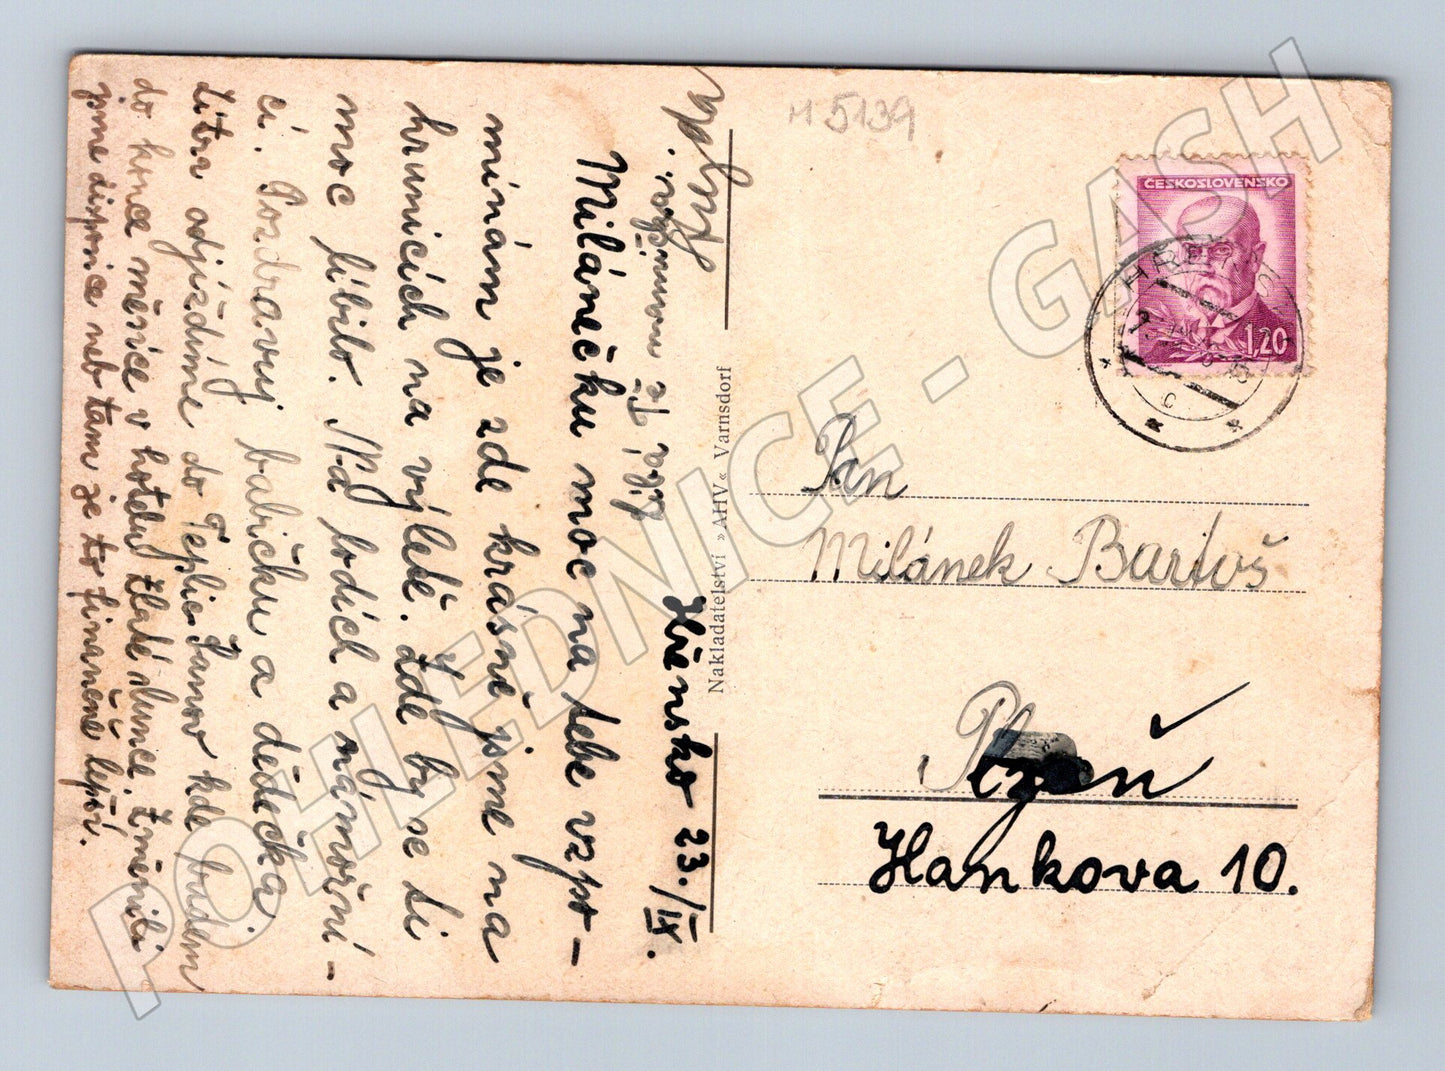 M 5139
ČESKOSLOVENSKO
1,20
Hřensko 23./IX.
Milánečku moc na tebe vzpo-
mínám je zde krásně jsme na
hranicích na výletě. Zde by se ti
moc líbilo. Na lodích a námořní-
cí. Pozdravuj babičku a dědečka
Zítra odjíždíme do Teplic Šanov kde budem
do konce měsíce v hotelu zlaté slunce. Změnili
jsme dispozice neb tam je to finančně lepší.
Nakladatelství »AHV« Varnsdorf
Pan
Milánek Bartoš
Plzeň
Hankova 10.
POHLEDNICE - GASH